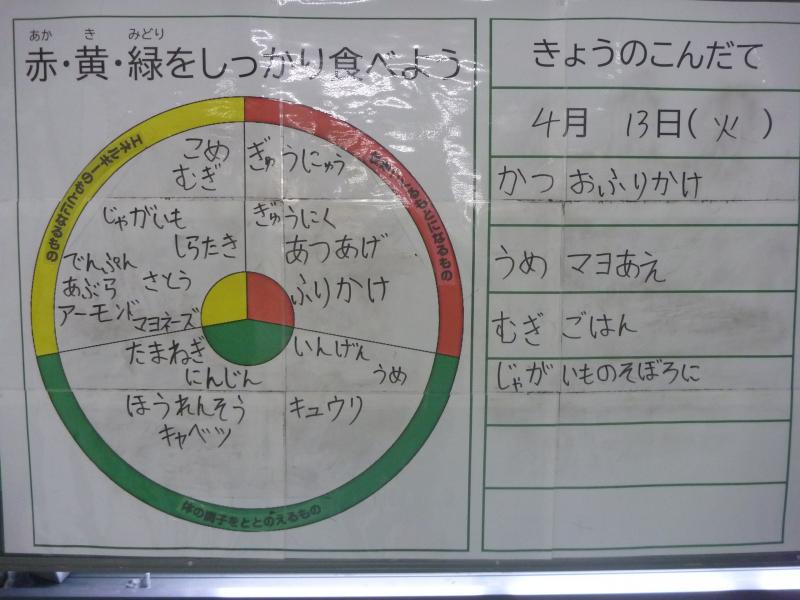 あか き みどり
赤・黄・緑をしっかり食べよう
エネルギーのもとになるもの
こめ
むぎ
じゃがいも
しらたき
でんぷん
さとう
あぶら
アーモンド
マヨネーズ
ぎゅうにゅう
ぎゅうにく
あつあげ
ふりかけ
たまねぎ
にんじん
ほうれんそう
キャベツ
いんげん
うめ
キュウリ
体の調子をととのえるもの
きょうのこんだて
4月 13日(火)
かつおふりかけ
うめマヨあえ
むぎごはん
じゃがいものそぼろに